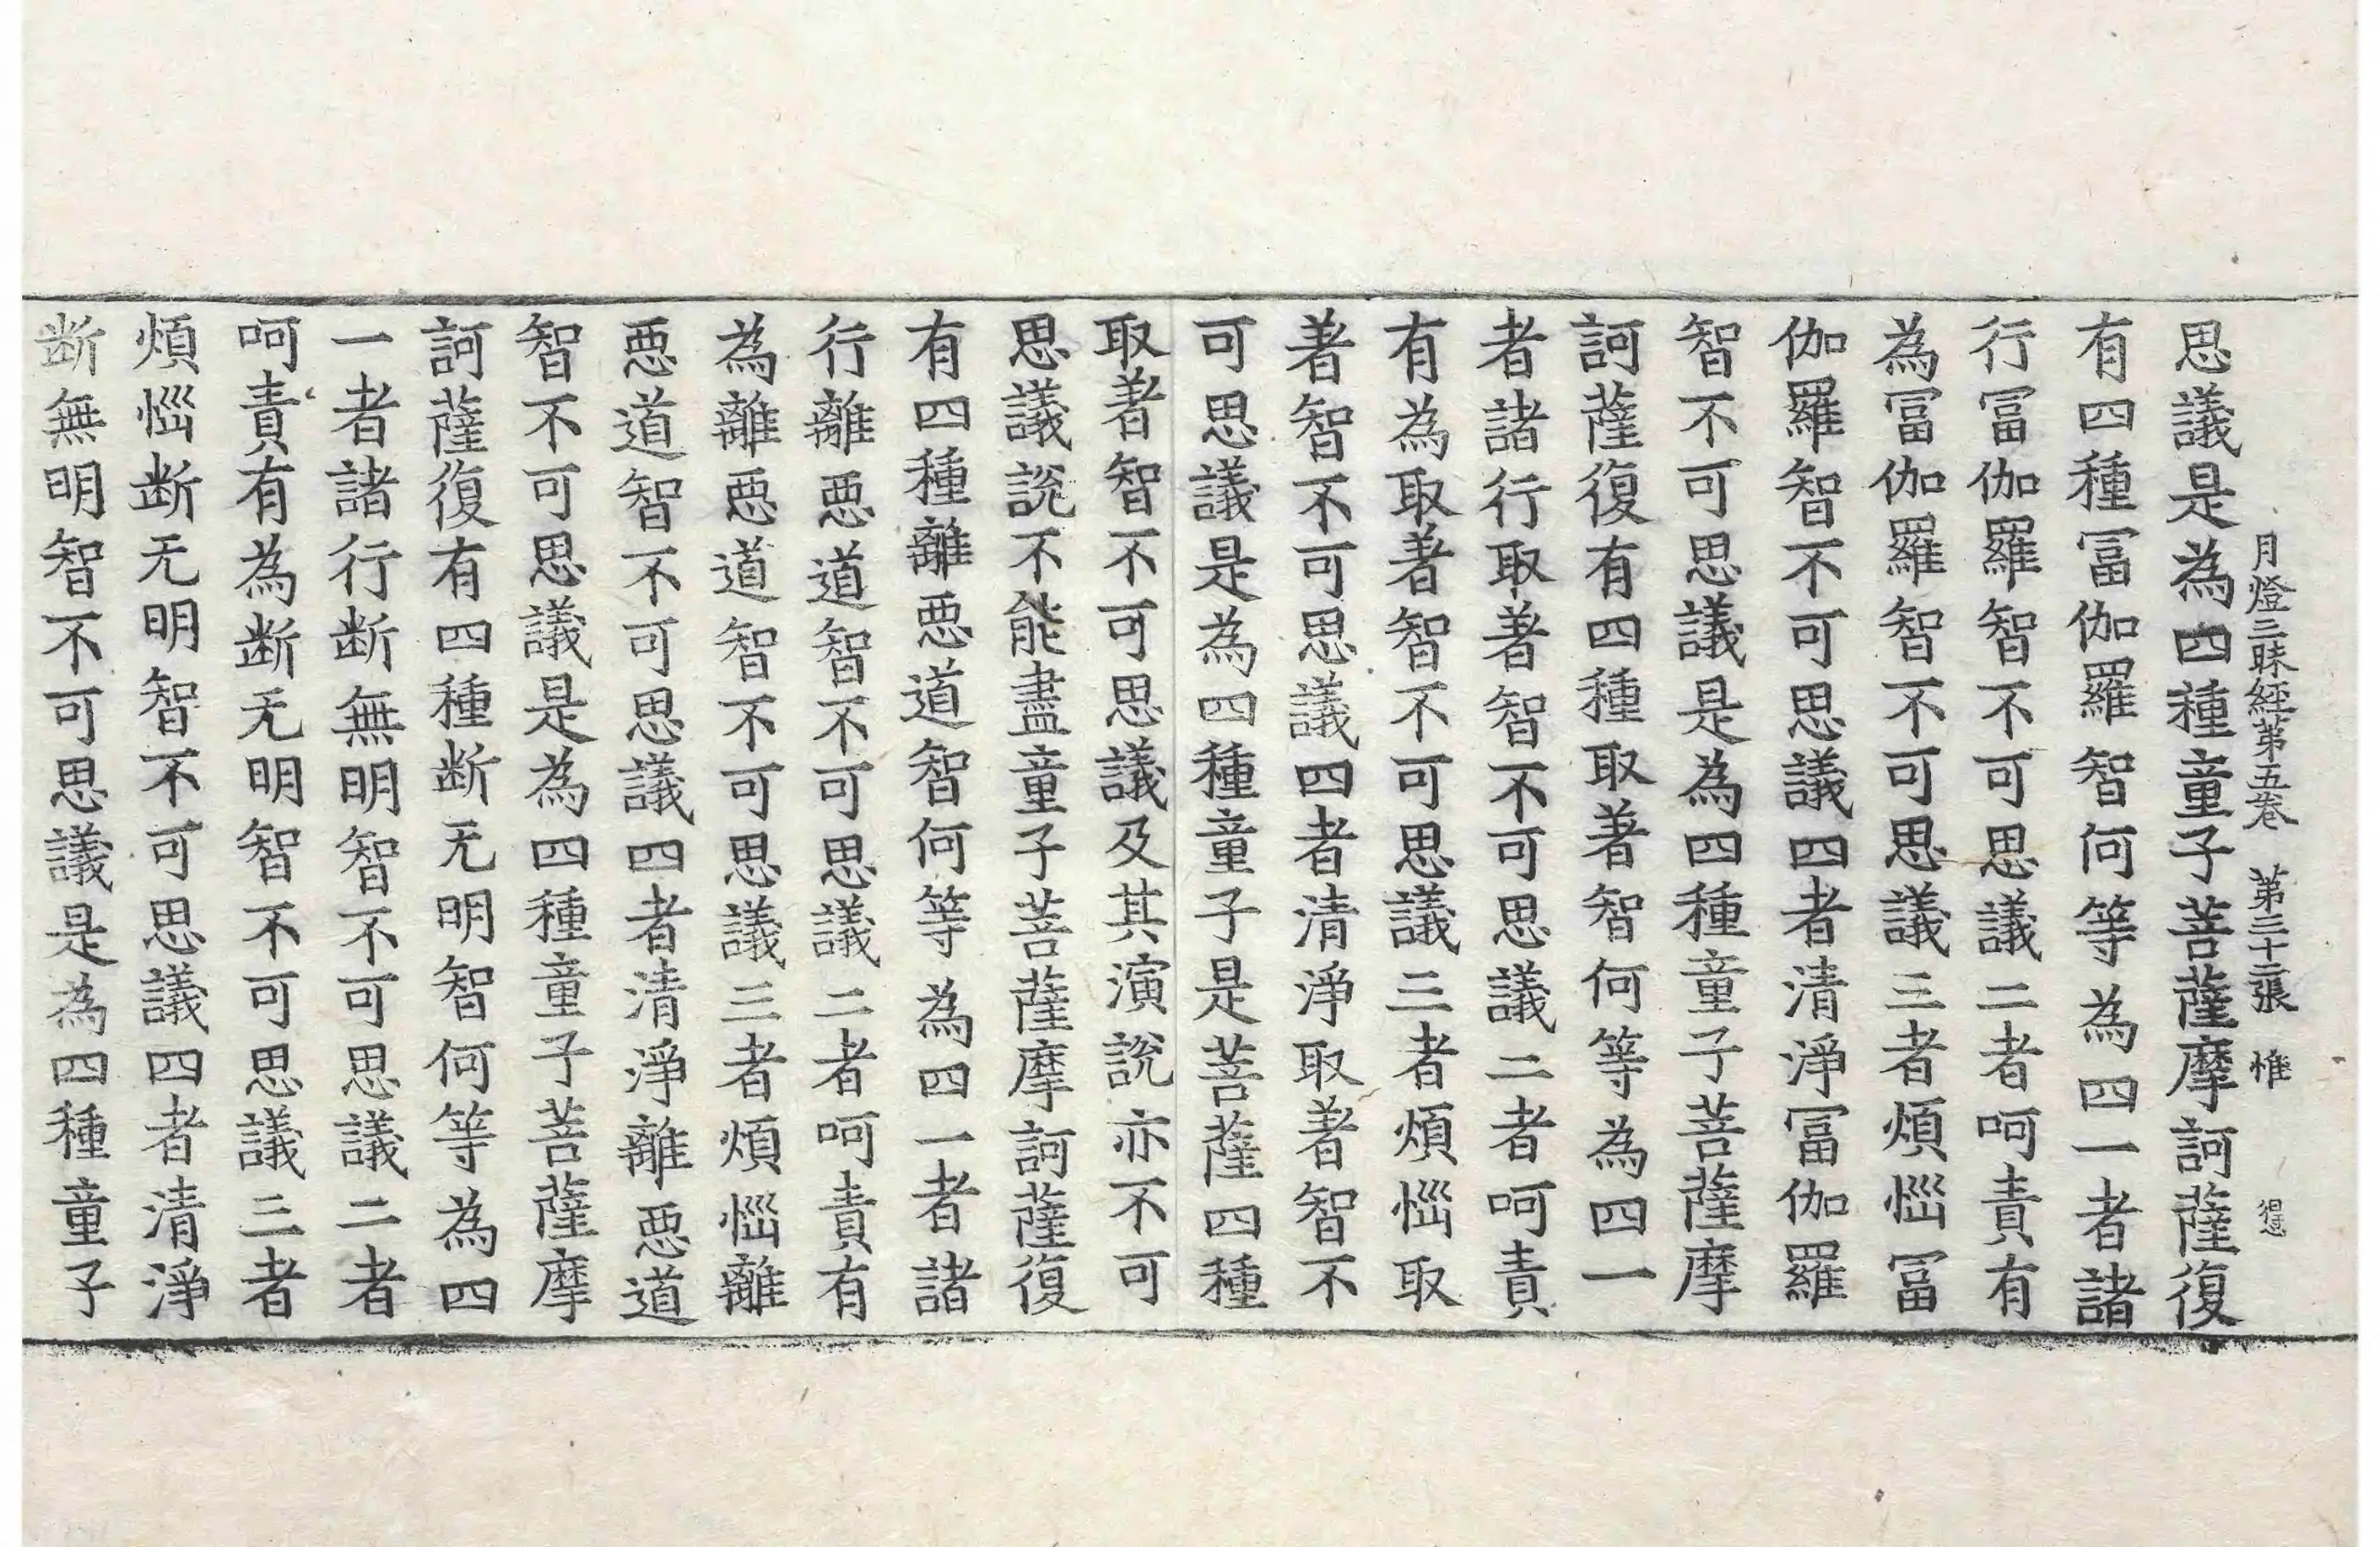 月燈三昧經第五卷　第三十二張　惟
思議是為四種童子菩薩摩訶薩復
有四種冨伽羅智何等為四一者諸
行冨伽羅智不可思議二者呵責有
為冨伽羅智不可思議三者煩惱冨
伽羅智不可思議四者清淨冨伽羅
智不可思議是為四種童子菩薩摩
訶薩復有四種取著智何等為四一
者諸行取著智不可思議二者呵責
有為取著智不可思議三者煩惱取
著智不可思議四者清淨取著智不
可思議是為四種童子是菩薩四種
取著智不可思議及其演說亦不可
思議說不能盡童子菩薩摩訶薩復
有四種離惡道智何等為四一者諸
行離惡道智不可思議二者呵責有
為離惡道智不可思議三者煩惱離
惡道智不可思議四者清淨離惡道
智不可思議是為四種童子菩薩摩
訶薩復有四種断无明智何等為四
一者諸行断無明智不可思議二者
呵責有為断无明智不可思議三者
煩惱断无明智不可思議四者清淨
断無明智不可思議是為四種童子